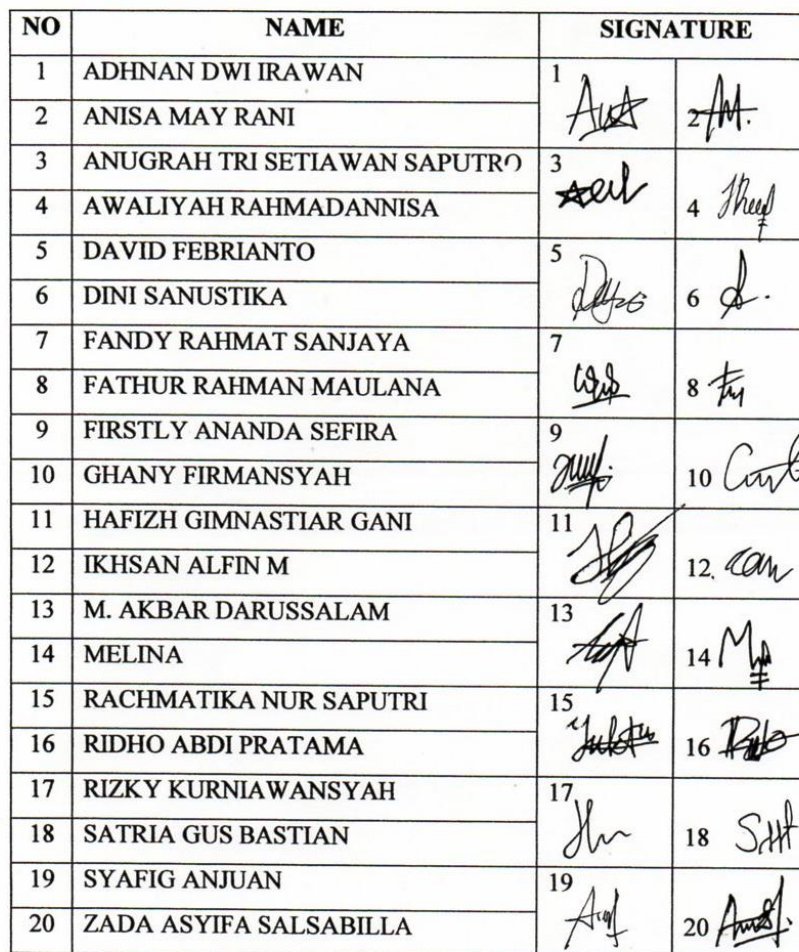 NO NAME SIGNATURE
1 ADHNAN DWI IRAWAN 1
2 ANISA MAY RANI 2
3 ANUGRAH TRI SETIAWAN SAPUTRO 3
4 AWALIYAH RAHMADANNISA 4
5 DAVID FEBRIANTO 5
6 DINI SANUSTIKA 6
7 FANDY RAHMAT SANJAYA 7
8 FATHUR RAHMAN MAULANA 8
9 FIRSTLY ANANDA SEFIRA 9
10 GHANY FIRMANSYAH 10
11 HAFIZH GIMNASTIAR GANI 11
12 IKHSAN ALFIN M 12.
13 M. AKBAR DARUSSALAM 13
14 MELINA 14
15 RACHMATIKA NUR SAPUTRI 15
16 RIDHO ABDI PRATAMA 16
17 RIZKY KURNIAWANSYAH 17
18 SATRIA GUS BASTIAN 18
19 SYAFIG ANJUAN 19
20 ZADA ASYIFA SALSABILLA 20